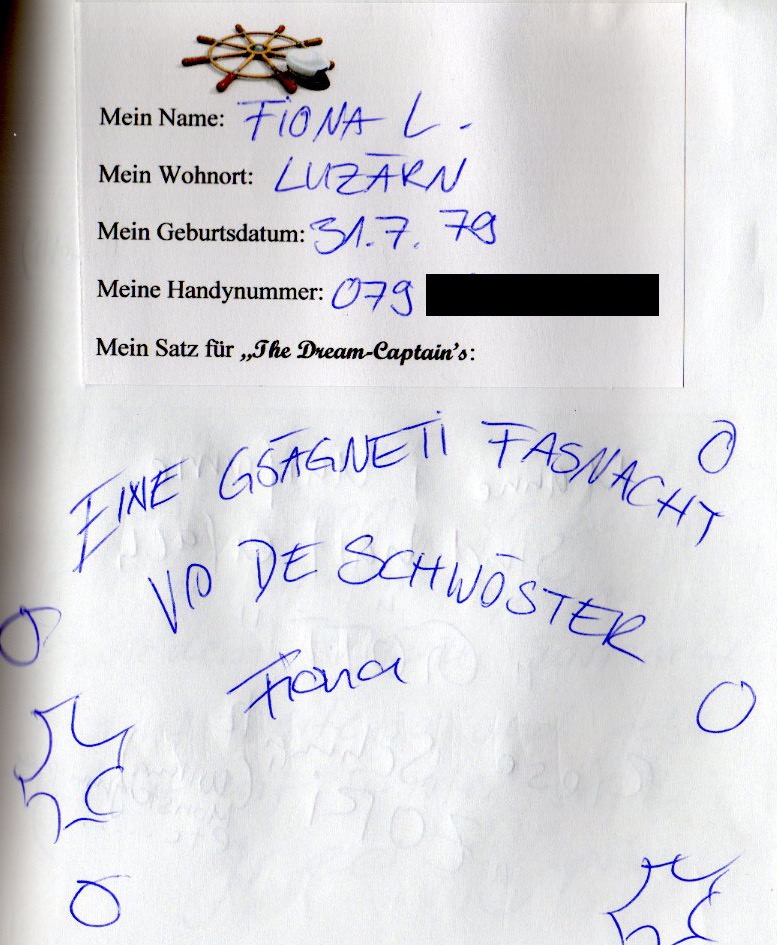 Mein Name: FIONA L.
Mein Wohnort: LUZÄRN
Mein Geburtsdatum: 31.7.79
Meine Handynummer: 079
Mein Satz für „The Dream-Captain's:
EINE GSÄGNETI FASNACHT
VO DE SCHWÖSTER
Fiona